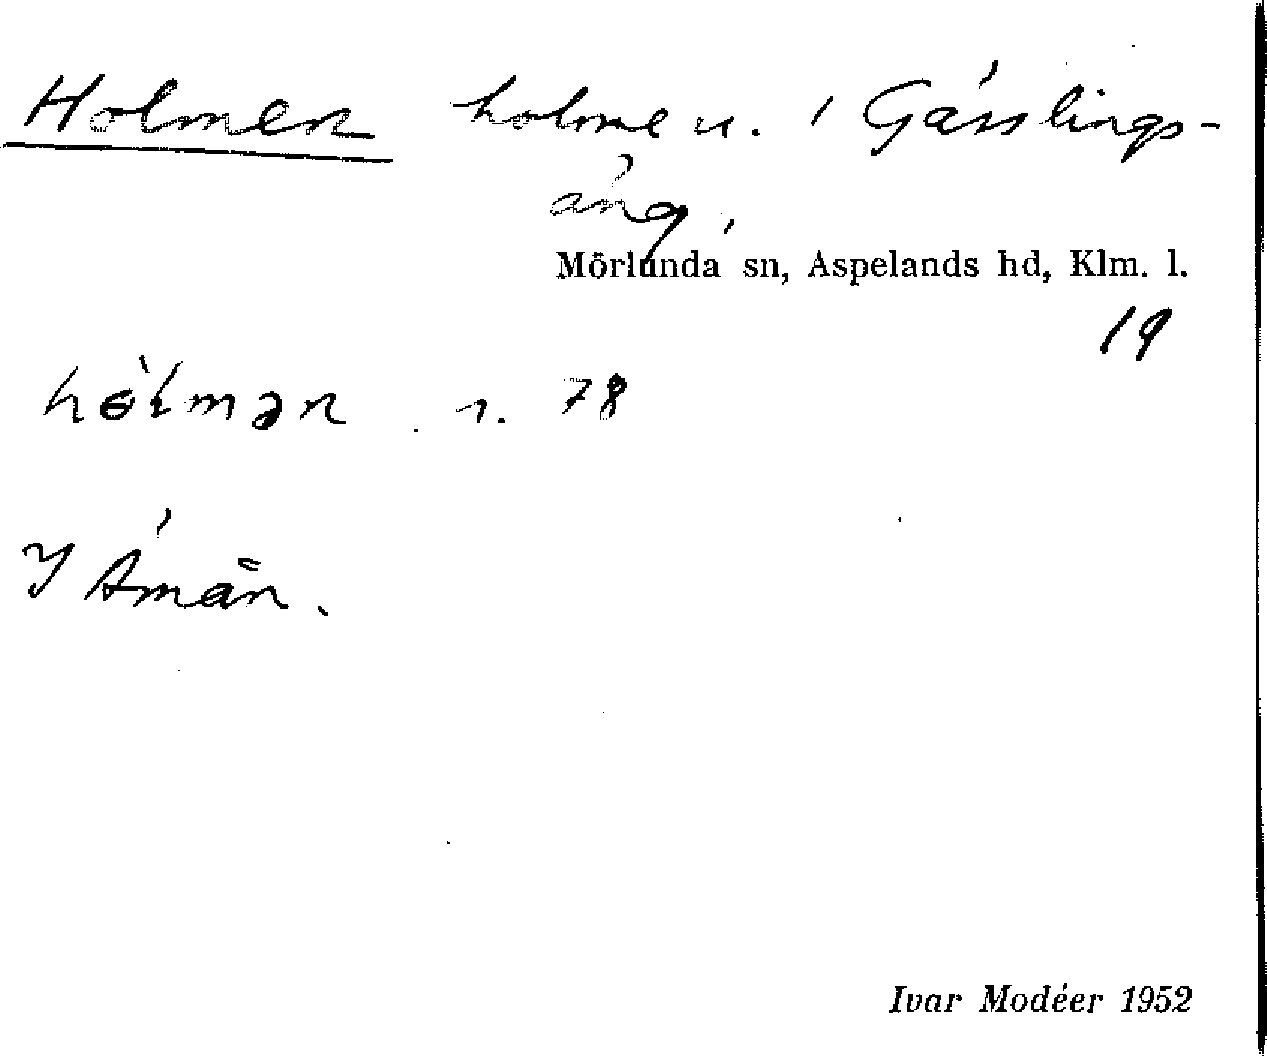 Holmen holme u. i Gässlings-
äng,
Mörlunda sn, Aspelands hd, Klm. l.
19
hólmən r. 78
I Åmän.
Ivar Modéer 1952